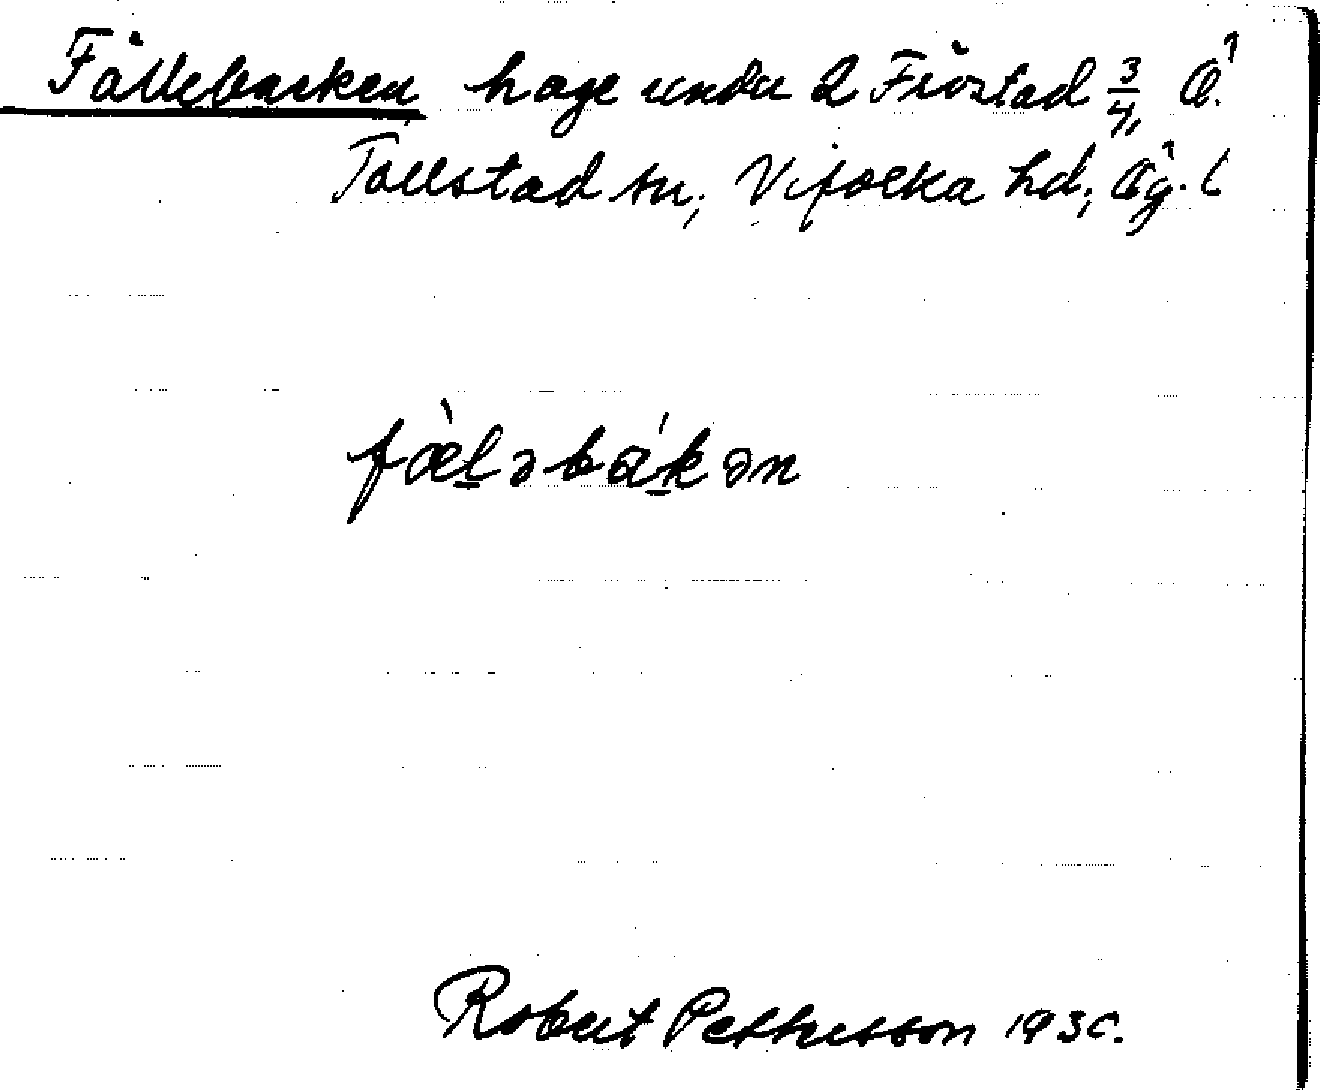 Fällebacken hage under 2 Fröstad 3/4, Ö.
Tollstad sn, Vifolka hd, Ög. l
fæ̀l̲əbák̲ən
Robert Pettersson 1930.